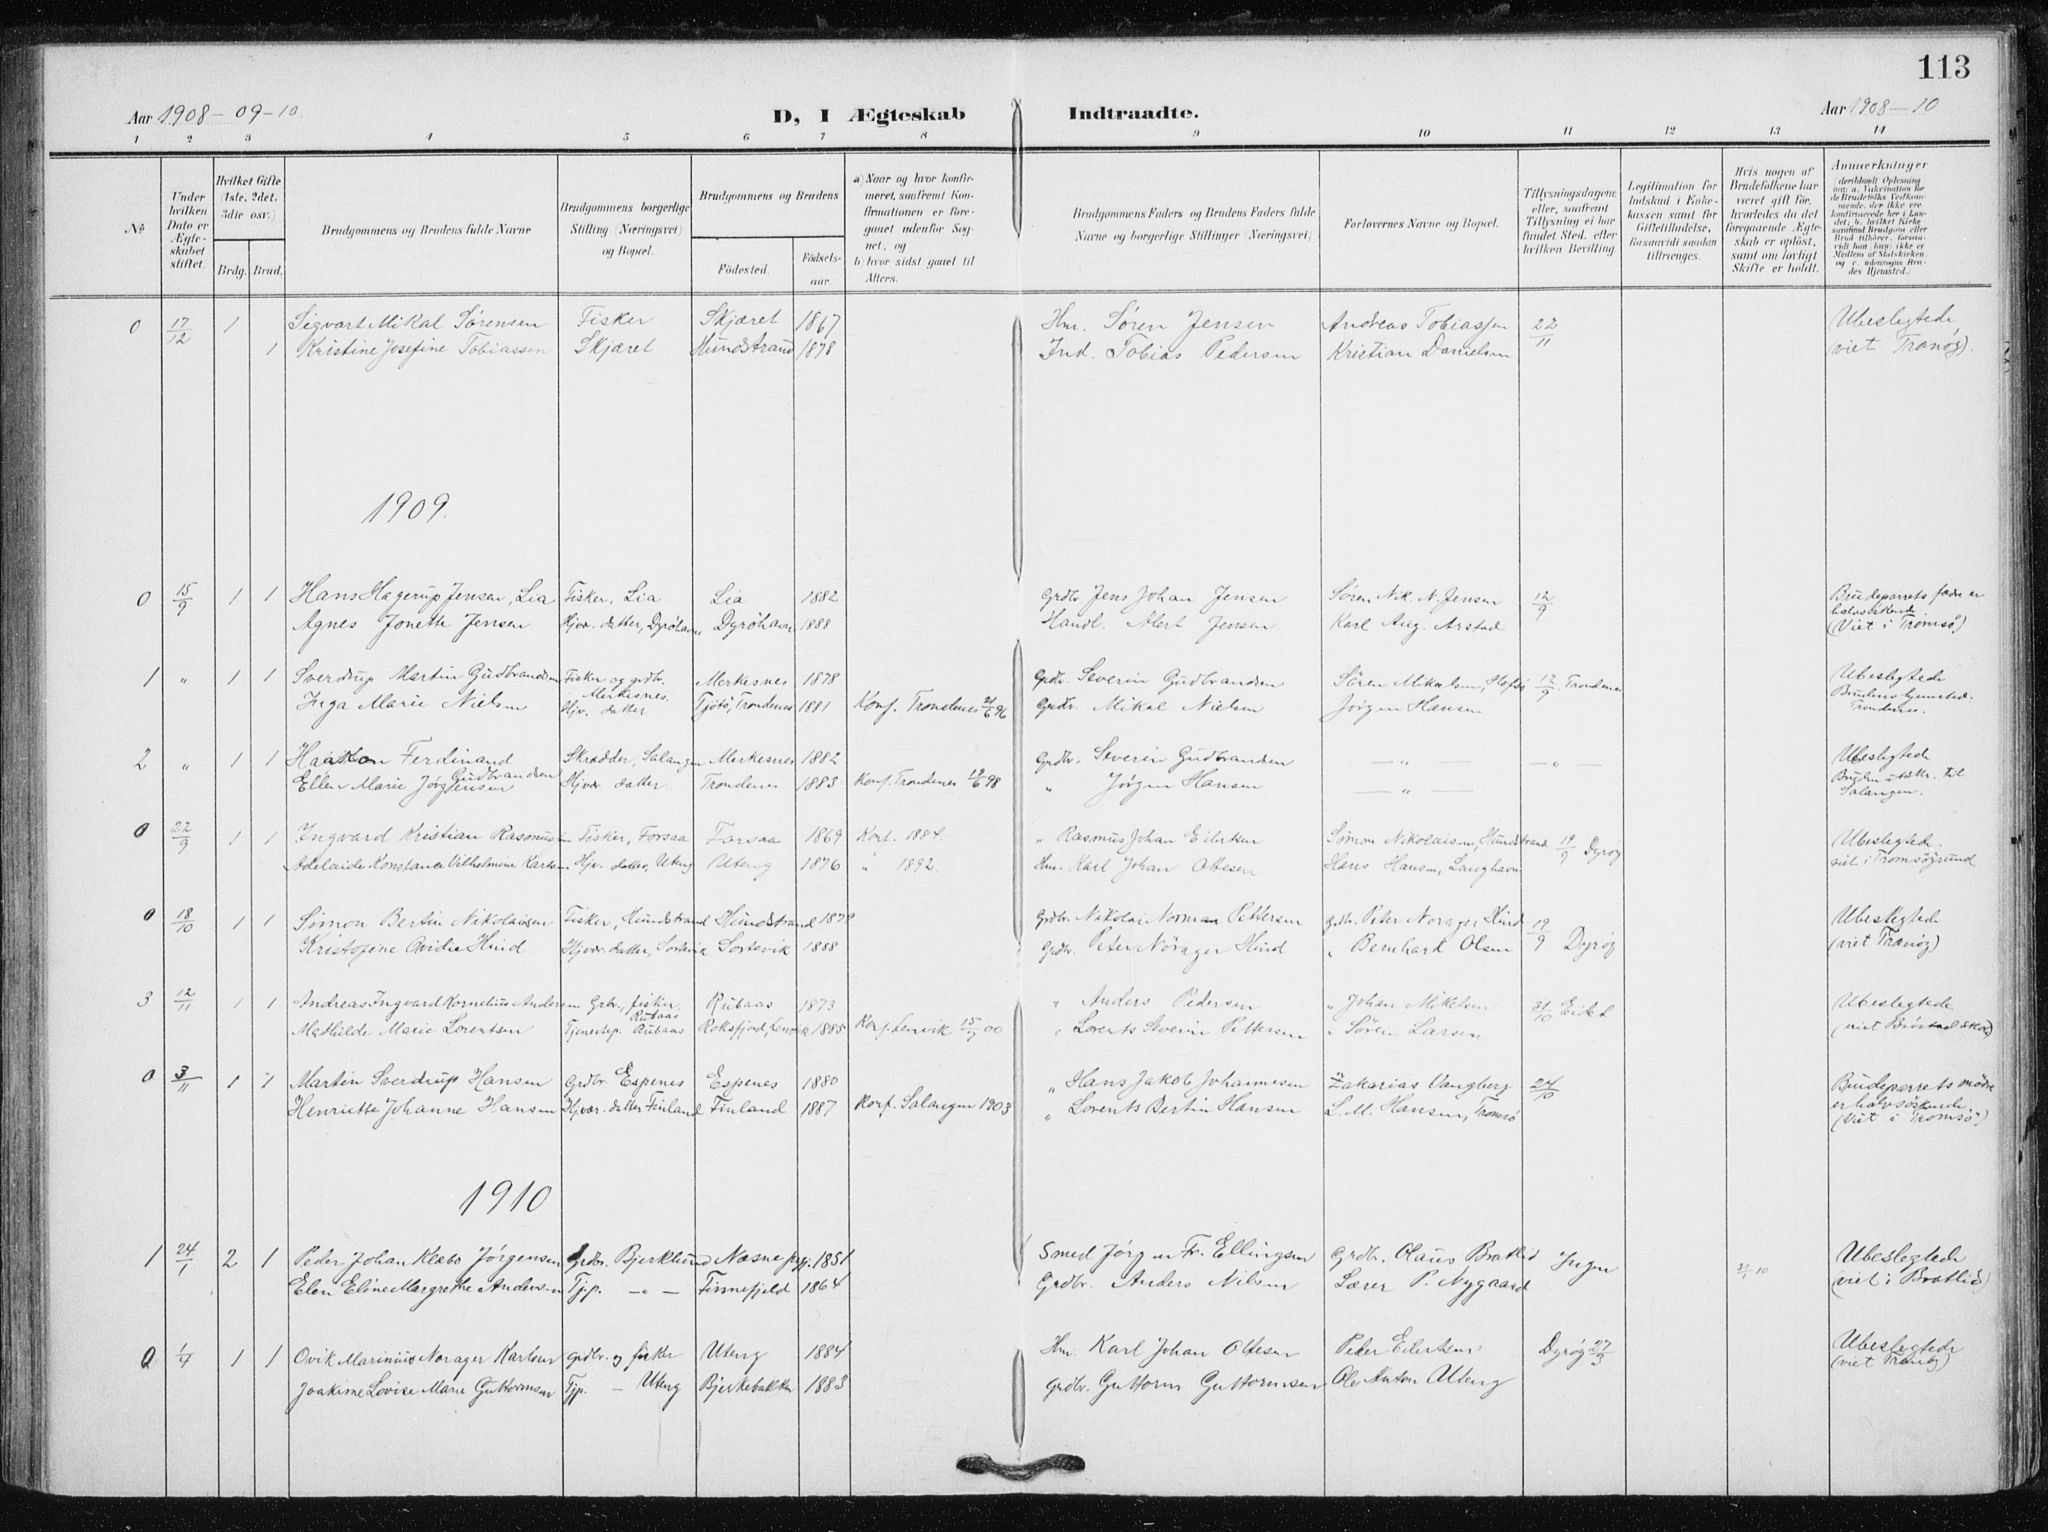 113
Aar 1908-09-10.
D, I Ægteskab Indtraadte.
Aar 1908-10
1 2 3 4 5 6 7 8 9 10 11 12 13 14
№
Under hvilken Dato er Ægteskabet stiftet.
Hvilket Gifte (1ste, 2det, 3die osv.)
Brdg. Brud.
Brudgommens og Brudens fulde Navne
Brudgommens borgerlige Stilling (Næringsvei) og Bopæl.
Brudgommens og Brudens
Födested. Födselsaar.
a) Naar og hvor konfirmeret, saafremt Konfirmationen er foregaaet udenfor Sognet, og
b) hvor sidst gaaet til Alters.
Brudgommens Faders og Brudens Faders fulde Navne og borgerlige Stillinger (Næringsvei)
Forlovernes Navne og Bopæl.
Tillysningsdagene eller, saafremt Tillysning ei har fundet Sted, efter hvilken Bevilling.
Legitimation for Indskud i Enkekassen samt for Giftetilladelse, forsaavidt saadan tiltrænges.
Hvis nogen af Brudefolkene har været gift för, hvorledes da det foregaaende Ægteskab er oplöst, samt om lovligt Skifte er holdt.
Anmerkninger (deriblandt Oplysning om: a. Vakcination for de Brudefolks Vedkommende, der ikke ere konfirmerede her i Landet; b. hvilket Kirkesamfund Brudgom eller Brud tilhörer, forsaavidt han (hun) ikke er Medlem af Statskirken, og c. udensogns Brudes Hjemsted.)
0 17/12 1 Sigvart Mikal Sørensen Fisker Skjæret 1867 Hm. Søren Jensen Andreas Tobiassen 22/11 Ubeslegtede
1 Kristine Josefine Tobiassen Skjæret Mundstrand 1878 Ind. Tobias Pedersen Kristian Danielsen (viet Tranøy).
1909.
0 15/9 1 1 Hans Hagerup Jensen, Lia Fisker, Lia Lia 1882 Grdbr Jens Johan Jensen Søren Nik. N. Jensen 12/9 Brudeparrets fædre er
Agnes Jonette Jensen Hjvær. datter, Dyröhavn Dyröhavn 1888 Handl. Albert Jensen Karl Aug. Arstad halvsöskende (Viet i Tromsö)
1 " 1 1 Sverdrup Martin Gudbrandsen Fisker og grdbr. Merkesnes Merkesnes 1878 Grdbr. Severin Gudbrandsen Sören Mikalsen, Hofsö 12/9 Trondenes Ubeslegtede
Inga Marie Nielsen Hjv. datter Tjötö, Trondenes 1881 Konf. Trondenes 21/6 96 Grdbr. Mikal Nielsen Jørgen Hansen Brudens hjemsted: Trondenes.
2 " 1 1 Haakon Ferdinand Gudbrandsen Skrædder, Salangen Merkesnes 1882 Grdbr. Severin Gudbrandsen — " — — " — Ubeslegtede
Ellen Marie Jörgensen Hjvær. datter Trondenes 1883 Konf. Trondenes 19/6 98 " Jørgen Hansen — " — Bruden utskr. til Salangen.
0 22/9 1 1 Ingvard Kristian Rasmussen Fisker, Forsaa Forsaa 1869 Konf. 1884. " Rasmus Johan Eilertsen Simon Nikolaisen, Hundstrand 19/9 Dyrøy Ubeslegtede.
Adelaide Konstance Vilhelmine Karlsen Hjv. datter, Uteng Uteng 1876 " 1892. Hm. Karl Johan Ottesen Hans Hansen, Langhavn viet i Tromsöysund
0 18/10 1 1 Simon Bertin Nikolaisen Fisker, Hundstrand Hundstrand 1879 Grdbr. Nikolai Norman Pettersen Grdbr. Peter Norager Hind 19/9 Dyrøy Ubeslegtede
Kristofine Ovidie Hind Hjvær. datter, Sortevik Sortevik 1888 Grdbr. Peter Nörager Hind " Bernhard Olsen (viet Tranøy)
3 12/11 1 1 Andreas Ingvard Kornelius Andersen Grbr., fisker Rubaas Rubaas 1873 " Anders Pedersen " Johan Mikelsen 31/10 Eidet Ubeslegtede
Mathilde Marie Lorentsen Tjenestep. Rubaas Roksfjord, Lenvik 1885 Konf. Lenvik 15/7 00 " Lorents Severin Pettersen " Sören Larsen (viet Bröstad skole)
0 3/11 1 1 Martin Sverdrup Hansen Grdbr Espenes Espenes 1880 " Hans Jakob Johannesen Zakarias Vangberg 24/10 Brudeparrets mødre
Henriette Johanne Hansen Hjvær. datter Finland Finland 1887 Konf. Salangen 1903 " Lorents Bertin Hansen L. M. Hansen, Tromsö er halvsöskende. (Viet i Tromsö)
1910
1 24/1 2 1 Peder Johan Klæbo Jörgensen Grdbr. Bjerklund Næsne prg. 1851 Smed Jørgen Fr. Ellingsen Grdbr. Olaus Bratlid Ingen 21/1 10 Ubeslegtede
Elen Eline Margrethe Andersen Tj.p. — " — Finnefjeld 1864 Grdbr. Anders Nilsen Lærer P. Nygaard (viet i Bratlid)
0 1/4 1 1 Ovik Marinius Norager Karlsen Grdbr. og fisker Uteng 1884 Hm. Karl Johan Ottesen Peder Eilertsen Dyrøy 27/3 Ubeslegtede
Joakime Lovise Marie Guttormsen Tjp. — Uteng Bjerkebakken 1883 Grdbr. Guttorm Guttormsen Ole Anton Uteng (viet Tranøy)